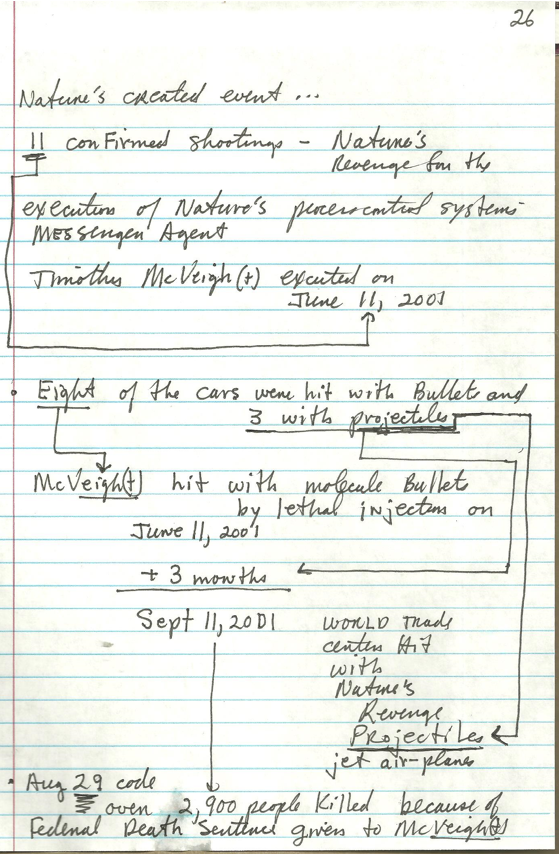 26
Nature's created event ...
11 confirmed shootings - Nature's
Revenge for the
execution of Nature's process control systems
MESSENGER Agent
Timothy McVeigh(t) excuted on
June 11, 2001
• Eight of the cars were hit with Bullets and
3 with projectiles
McVeigh(t) hit with molecule Bullets
by lethal injection on
June 11, 2001
+ 3 months
Sept 11, 2001
WORLD Trade
centers Hit
with
Nature's
Revenge
Projectiles
jet air-planes
• Aug 29 code
over 2,900 people Killed because of
Federal Death Sentence given to McVeigh(t)